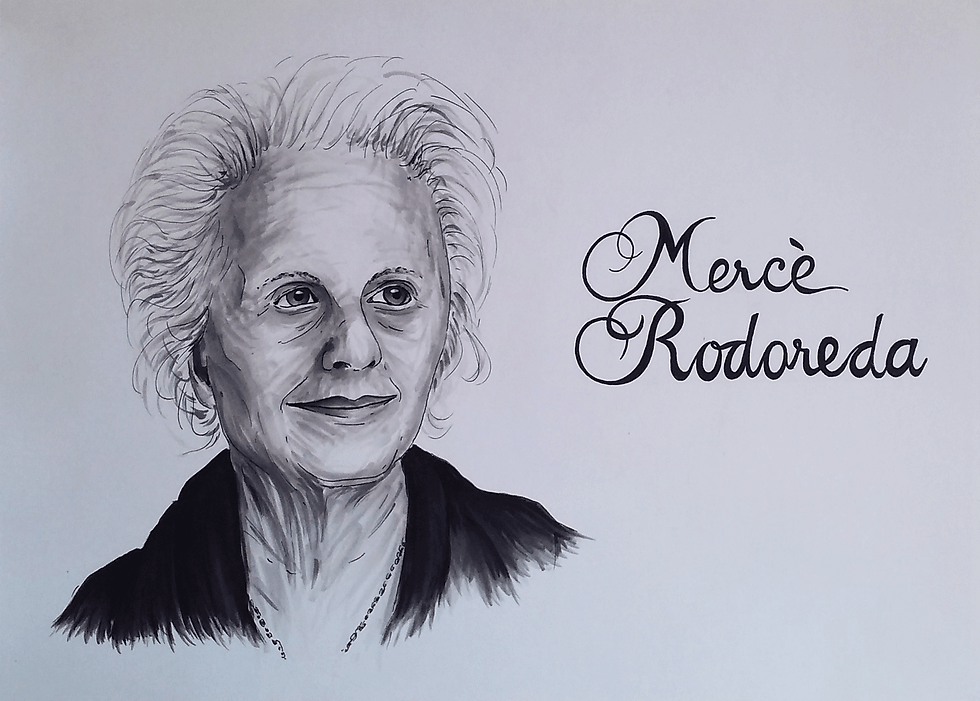 Mercè
Rodoreda